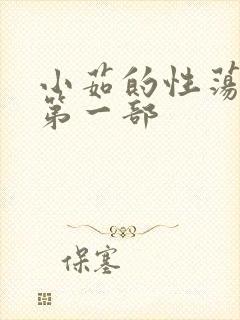 小茹的性荡
第一部
保塞